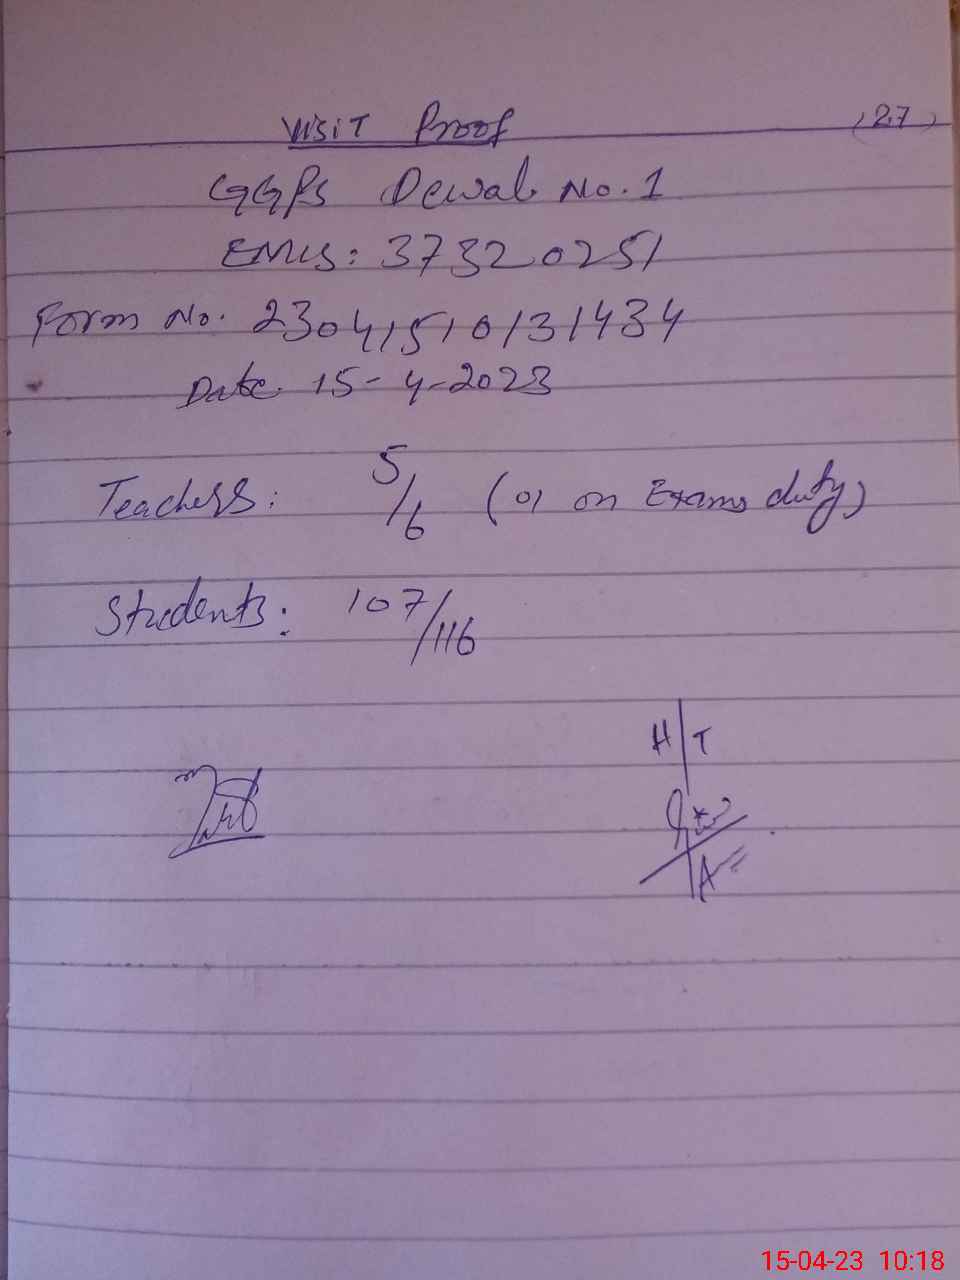 VISIT Proof (27)
GGPS Dewal No. 1
EMIS: 37320251
Form No. 23041510131434
Date 15-4-2023
Teachers: 5/6 (01 on Exams duty)
Students: 107/116
H/T
15-04-23 10:18